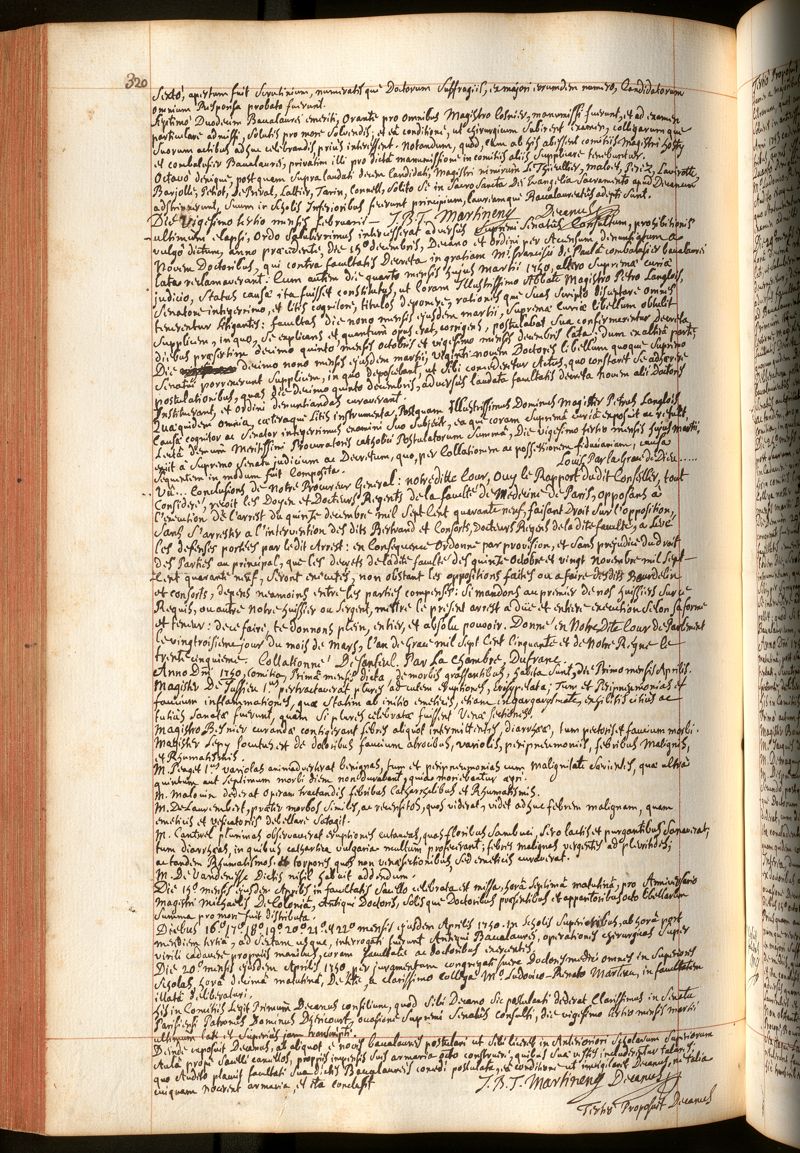 320
Sexto, apertum fuit Scrutinium, numeratis que Doctorum Suffragiis, ex majori eorumdem numero, Candidatorum
omnium Responsa probata fuerunt.
Septimo Duodecim Baccalaurei emeriti, Orante pro omnibus Magistro Cosnier, manumissi fuerunt, et ad examen
particulare admissi, Solutis pro more Solvendis; et eâ conditione, ut chirurgicum Subirent examen, collegarum que
Suorum actibus adhuc celebrandis, prius interessent. Notandum, quod, cum ab his abfuissent comitiis Magistri hosty
et combalusier Baccalaurei, privatim illi pro dictâ manumissione in comitiis aliis Supplicare tenebuntur.
Octavo denique, postquam Supra laudati decem Candidati, Magistri nimirum Le Thieullier, maloet, Periz, Lavirotte,
Barjolle, Petiot, de Preval, Lallier, Tarin, Connell, Solito Se in Sacro Sancta Dei Evangelia Sacramento apud Decanum
adstrinxerunt, Suum in Scholis Inferioribus fecerunt principium, lauream que Baccalaureatus adepti Sunt.
Die Vigesimo tertio mensis februarii — J. B. T. Martinenq Decanus
ultimum elapsi, Ordo Saluberrimus intercesserat adversus Supremi Senatus Consultum, prohibitionis
vulgo dictum, anno praecedente, die 15º decembris, Decano et Ordini per Accensum denuntiatum a
Novem Doctoribus, qui contra facultatis Decreta in gratiam Mi. francisci de Paulâ combalusier baccalaurei
lata reclamaverant. Cum autem die quarto mensis hujus Martii 1750, altero Supremae curiae
judicio, Status causae ita fuisset constitutus, ut Coram Illustrissimo Abbate Magistro Petro Langlois,
Senatore integerrimo, et litis cognitore, titulos deponere, rationes que Suas Scripto disertare omnes
tenerentur litigantes: facultas die nono mensis ejusdem martii, Supremae Curiae libellum obtulit
Supplicem, in quo, Se explicans et quantum opus erat, corrigens, postulabat Sua confirmarentur Decreta
diebus praesertim decimo quinto mensis octobris et vigesimo mensis decembris lata: dum ex alterâ parte,
Die decimo nono mensis ejusdem martii, viginti-novem Doctores libellum quoque Supremo
Senatui porrexerunt Supplicem, in quo deposcebant, ut Sibi concederetur Actus, quo constaret Se adhaerere
postulationibus, quas die decimo quinto decembris, adversus laudatae facultatis decreta novem alii Doctores
Instituerant, et Ordini denuntiandas curaverant.
Quae quidem omnia, caetera que litis instrumenta, Postquam Illustrissimus Dominus Magister Petrus Langlois,
Causae cognitor ac Senator integerrimus examini Suo Subjecit, ea que coram Supremâ Curiâ exposuit ac retulit,
Lectâ demum Meritissimi Procuratoris catholici Postulatorum Summâ, Die vigesimo tertio mensis hujus Martii,
exiit a Supremo Senatu judicium ac Decretum, quo, per Collationem ac possessionem fiduciariam, causa
Sequentem in modum fuit Composita. Louis Par la Grace de Dieu.....
Vû... Conclusions de Notre Procureur General: notre ditte Cour, Ouy le Rapport dudit Conseiller, tout
Consideré, reçoit les Doyen et Docteurs Regents de la faculté de Médecine de Paris, opposans à
l'execution de l'arrest du quinze decembre mil Sept Cent quarante neuf, faisant Droit Sur l'opposition,
Sans S'arrester a l'intervention des dits Bertrand et Consorts, Docteurs Regens de la dite faculté, a Levé
les defenses portées par le dit Arrest: en Consequence Ordonne par provision, et Sans prejudice du droit
des Parties au principal, que les decrets de la dite faculté des quinze Octobre et vingt Novembre mil Sept
Cent quarante neuf, Seront executés, non obstant les oppositions faites ou a faire des dits Bourdelin
et consorts, depens neamoins entre les parties compensés: Si mandons au premier de nos huissiers Sur ce
Requis, ou autre notre huissier ou Sergent, mettre le present arrest a duë et entiere execution Selon Sa forme
et teneur: de ce faire, te donnons plein, entier, et absolu pouvoir. Donné en Notre Dite Cour de Parlement
le vingtroisieme jour du mois de Mars, l'an de Grace mil Sept Cent Cinquante et de Notre Regne le
trente cinquieme. Collationné De Janseul. Par La Chambre, Dufranc
Anno Dni 1750, Comitia, Primâ mensis dicta, de morbis grassantibus, habita Sunt, die Primo mensis Aprilis.
Magister De Jussieu 1us pertractaverat plures ad cutem eruptiones, Erysipelata, Tum et Peripneumonias et
faucium inflammationes, quae Statim ab initio emeticis, etiam in gargarismate, exhibitis citius ac
tutius Sanatae fuerunt, quam Si plures celebratae fuissent Venae Sectiones.
Magistro Besnier curandae contigerant febres aliquot intermittentes, diarrhaeae, tum pectoris et faucium morbi.
Magister Lepy Locutus est de doloribus faucium atrocibus, variolis, peripneumoniis, febribus Malignis,
et Rhumatismis.
M. Pinget 1us variolas animadverterat benignas, tum et peripneumonias cum malignitate Saevientes, quae ultrà
quintum aut Septimum morbi diem non durabant, quae moriebatur aegri.
M. Malouin dederat operam tractandis febribus Catharrhalibus et Rhumatismis.
M. De Laurembert, praeter morbos Similes, ac recensitos, quos viderat, videt adhuc febrem malignam, quam
emeticis et vesicatoriis debellare Satagit.
M. Cantwel plurimas observaverat eruptiones cutaneas, quas floribus Sambuci, Sero lactis et purgantibus Sanaverat;
tum diarrhaeas, in quibus cathartica vulgaria multum profuerant; febres malignas vergentes ad pleuritides;
ac tandem Rhumatismos, et torpores quos non venaesectionibus, Sed emeticis curaverat.
M. De Vandenesse Dictis nihil habuit addendum.
Die 15º mensis ejusdem Aprilis in facultatis Sacello celebrata est missa, horâ Septimâ matutinâ, pro Anniversario
Magistri Michaelis De Colonia, Antiqui Doctoris, Solis que Doctoribus praesentibus et apparitoribus octo libellarum
Summa pro more fuit distributa.
Diebus 16º 17º 18º 19º 20º 21º et 22º mensis ejusdem Aprilis 1750. in Scholis Superioribus, ab horâ post
meridiem tertiâ, ad Sextam usque, interrogati fuerunt Antiqui Baccalaurei, operationes chirurgicas Super
virili cadavere propriis manibus, coram facultate ac doctoribus exercentes.
Die 20º mensis ejusdem Aprilis 1750 per juramentum congregati fuere Doctores medici omnes in Superiores
Scholas, horâ decimâ matutinâ, De lite, a clarissimo collega Mo Ludovico-Renato Marteau, in facultatem
illatâ deliberaturi.
His in Comitiis Legit Primum Decanus consilium, quod Sibi Decano Sic postulanti dederat Clarissimus in Senatu
Parisiensi Patronus Dominus Dhericourt, occasione Supremi Senatus Consulti, die vigesimo tertio mensis martii
ultimum lati et Superius jam transcripti.
Deinde exposuit Decanus, ab aliquot e novis baccalaureis postulari ut Sibi liceret in Anteriori Scholarum Superiorum
Aulâ prope Sacelli cancellos, propriis impensis Sui armaria octo construere, quibus Suae vestes includerentur talares;
quo Audito placuit facultati Sua dictis Baccalaureis concedi postulata, eâ conditione ut invigilaret Decanus, ne talia
cuiquam nocerent armaria, et ita conclusit J. B. T. Martinenq Decanus
Tertio Proposuit Decanus